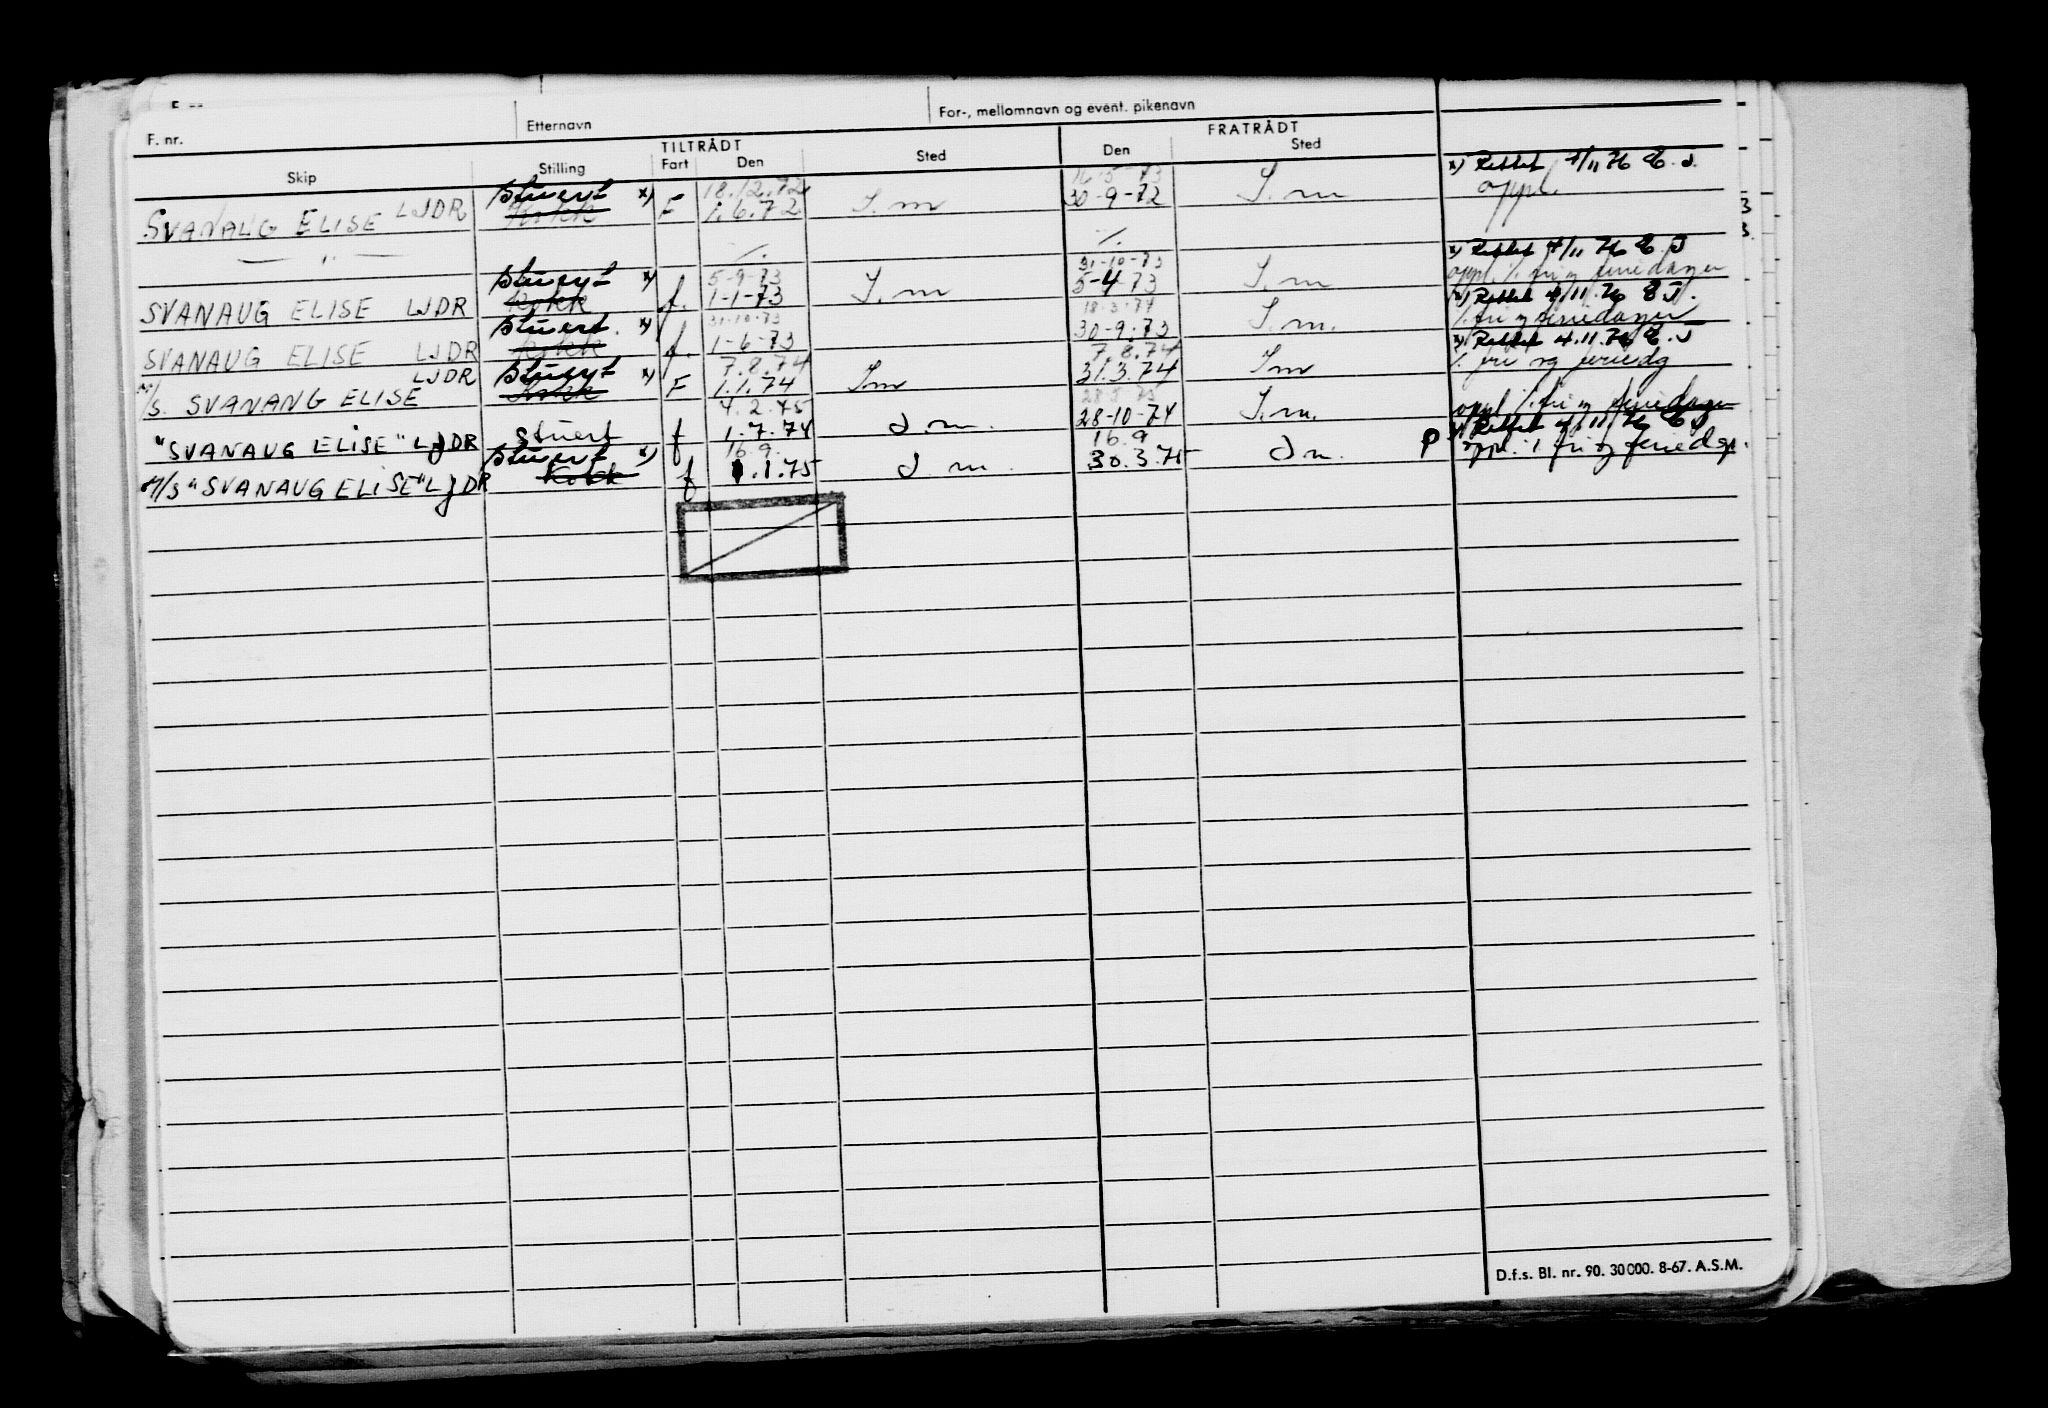 F. nr. Etternavn For-, mellomnavn og event. pikenavn
TILTRÅDT FRATRÅDT
Skip Stilling Fart Den Sted Den Sted
Stuert x) 18.12.72 16-5-73 x) Rettet 4/11 76 E.J.
SVANAUG ELISE LJDR Kokk F 1.6.72 I.m 30-9-72 I.m oppl.
— " — ·/. ·/.
Stuert x) 5-9-73 31-10-73 x) Rettet 4/11 76 E.J
SVANAUG ELISE LJDR Kokk f. 1-1-73 I.m 5-4-73 I.m oppl. /. fri og feriedager
Stuert. x) 31-10-73 18-3-74 x) Rettet 4/11.76 E J.
SVANAUG ELISE LJDR Kokk f. 1-6-73 30-9.73 I.m. /. fri og feriedager
Stuert x) 7.8.74 7.8.74 x) Rettet 4.11.76 E.J
M/S. SVANANG ELISE LJDR Kokk F 1.1.74 Im 31.3.74 Im /. fri og feriedg
4.2.75 28.5.75 oppl /. fri og feriedager
"SVANAUG ELISE" LJDR Stuert f 1.7.74 I.m. 28-10-74 I.m.
Stuert x) 16.9. 16.9 x) Rettet 4/11 76 E J
M/S "SVANAUG ELISE" LJDR Kokk f 1.1.75 I.m. 30.3.75 I m. P oppl. i fri og feriedgr.
D.f.s. Bl. nr. 90. 30000. 8-67. A.S.M.